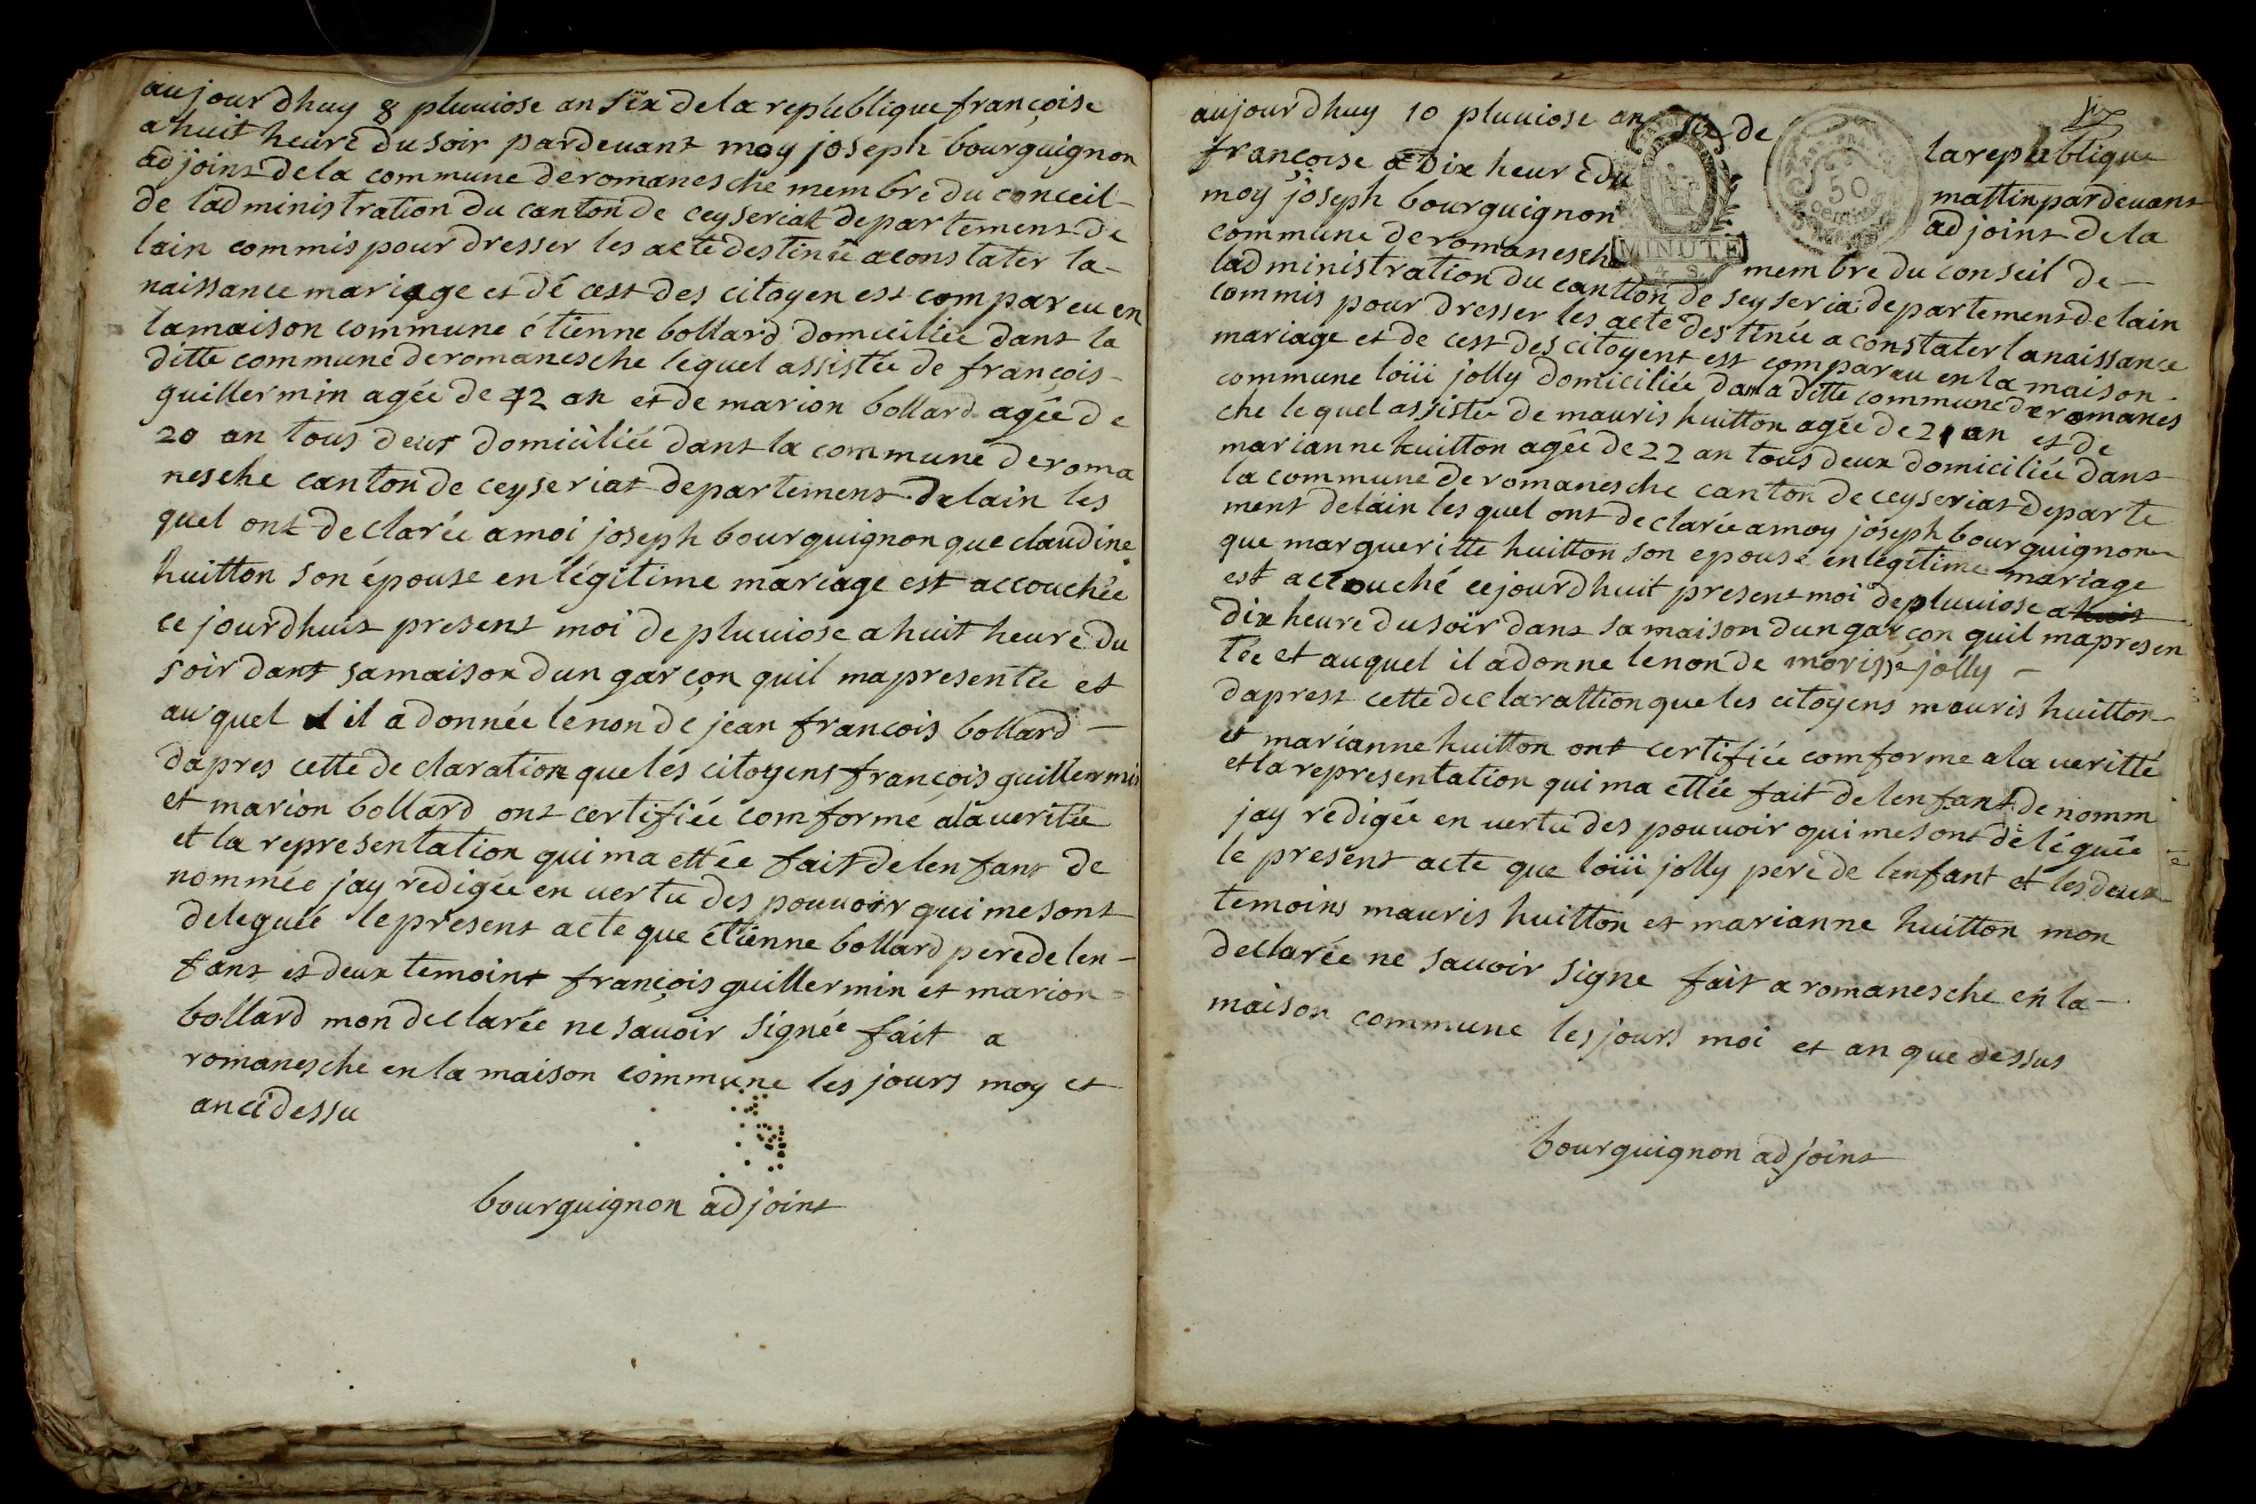 aujourdhuy 8 pluuiose an six de la republique françoise
a huit heure du soir pardeuant moy joseph bourguignon
adjoint de la commune de romanesche membre du conceil
de ladministration du canton de ceyseriat departement de
lain commis pour dresser les acte destinée a constater la
naissance mariage et dé cest des citoyen est compareu en
la maison commune étienne bollard domiciliée dans la
ditte commune de romanesche lequel assistée de françois
guillermin agée de 42 an et de marion bollard agée de
20 an tous deux domiciliée dans la commune de roma
nesche canton de ceyseriat departement de lain les
quel ont declarée a moi joseph bourguignon que claudine
huitton son épouse en légitime mariage est accouchée
ce jourdhuit present moi de pluuiose a huit heure du
soir dant sa maison dun garçon quil ma presentée et
au quel il a donnée le non de jean francois bollard
dapres cette declaration que les citoyens françois guillermis
et marion bollard ont certifiée comforme a la veritée
et la representation qui ma ettée fait de lenfant de
nommée jay redigée en vertu des pouuoir qui me sont
deleguée le present acte que étienne bollard pere de len
fant et deux temoint françois guillermin et marion
bollard mon declarée ne sauoir signée fait a
romanesche en la maison commune les jours moy et
an ci dessu
bourguignon adjoint
aujourdhuy 10 pluuiose an six de la republique
françoise a dix heure du mattin pardeuant
moy joseph bourguignon adjoint de la
commune de romanesche membre du conseil de
MINUTE
50
centimes
ladministration du cantton de seyseria departement de lain
commis pour dresser les acte destinée a constater la naissance
mariage et de cest des citoyent est compareu en la maison
commune loüii jolly domiciliée dans la ditte commune de romanes
che le quel assistée de mauris huitton agée de 21 an et de
marianne huitton agée de 22 an tous deux domiciliée dans
la commune de romanesche canton de ceyseriat departe
ment de lain les quel ont declarée a moy joseph bourguignon
que margueritte huitton son epouse en legitime mariage
est accouché ce jourdhuit present moi de pluuiose a huit
dix heure du soir dans sa maison dun garçon quil ma presen
tée et auquel il a donne le non de morisse jolly
daprest cette declarattion que les citoyens mauris huitton
et marianne huitton ont certifiée comforme a la veritté
et la representation qui ma ettée fait de lenfant de nomm
é
jay redigée en vertu des pouuoir qui me sont deléguée
le present acte que loüii jolly pere de lenfant et les deux
temoins mauris huitton et marianne huitton mon
declarée ne sauoir signe fait a romanesche en la
maison commune les jours moi et an que dessus
bourguignon adjoint